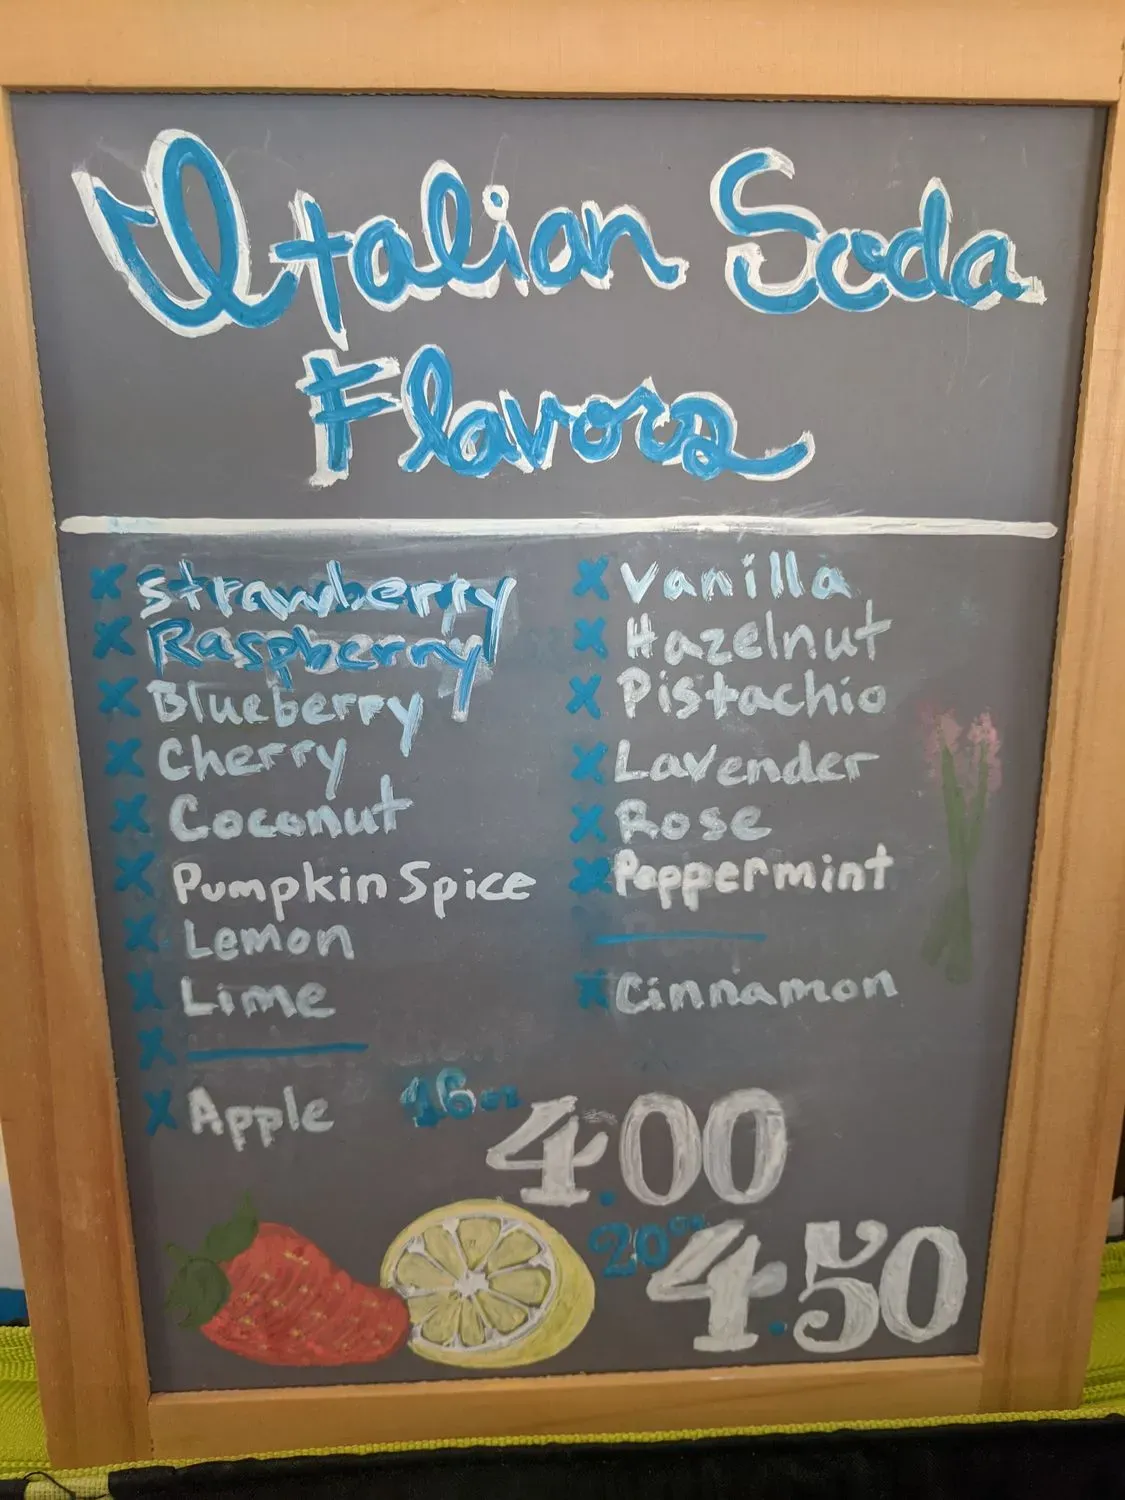 Italian Soda
Flavors
x strawberry
x Raspberry
x Blueberry
x Cherry
x Coconut
x Pumpkin Spice
x Lemon
x Lime
x
x Apple
x Vanilla
x Hazelnut
x Pistachio
x Lavender
x Rose
x Peppermint
x Cinnamon
16 oz 4.00
20 oz 4.50